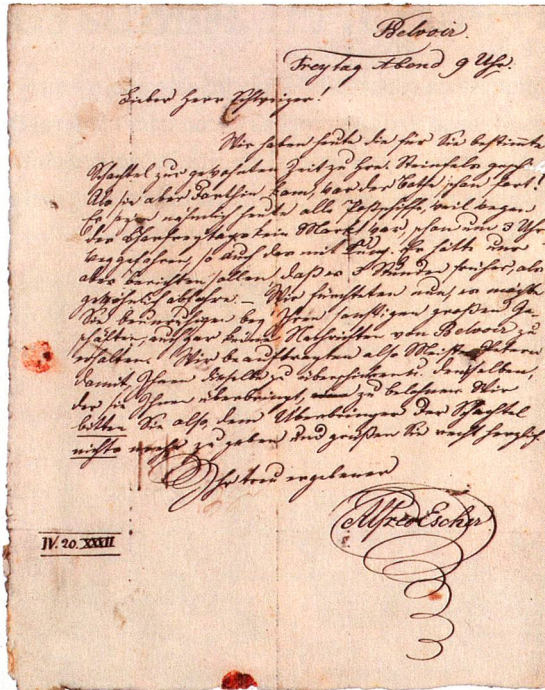 Belvoir.
Freytag Abend 9 Uhr.
Lieber Herr Schweizer!
Wir haben heute die für Sie bestimmte
Schachtel zur gewohnten Zeit zu Hrn. Steinfels geschickt
Als sie aber dorthin kam, war der Bothe schon fort!
Es seyen nähmlich heute alle Postschiffe, weil wegen
des Charfreytags kein Markt war, schon um 3 Uhr
weggefahren, so auch das mit Er hätte uns
aber berichten sollen, daß es 3 Stunden früher, als
gewöhnlich abfahre. – Wir fürchteten nun, es möchte
Sie beunruhigen bey Ihren sonstigen großen Ge-
schäften, auch gar keine Nachrichten von Belvoir zu
erhalten. Wir beauftragten also Meister Peter
damit Ihnen dieselbe zu überschicken u. denselben,
der sie Ihnen überbringt, zu belohnen. Wir
bitten Sie also, dem Überbringer der Schachtel
nichts mehr zu geben und grüßen Sie recht herzlich
Ihr treu ergebener
Alfred Escher
IV. 20. XXXII